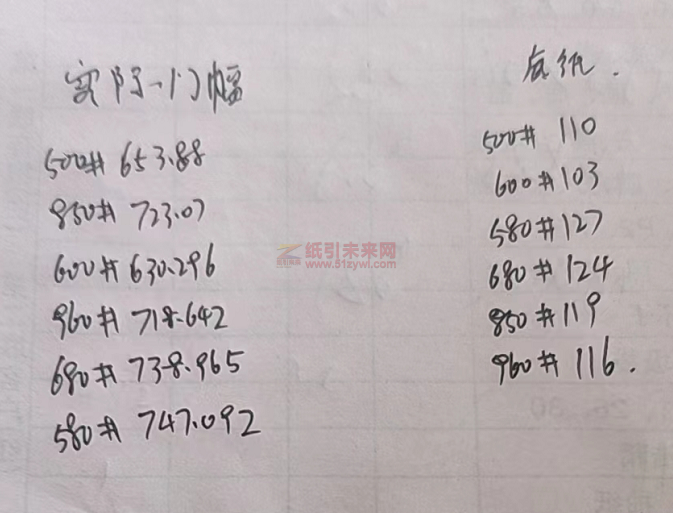 实际门幅
500# 653.88
850# 723.07
600# 630.296
960# 718.642
680# 738.965
580# 747.092
底纸.
500# 110
600# 103
580# 127
680# 124
850# 119
960# 116.
纸引未来网
www.51zywl.com